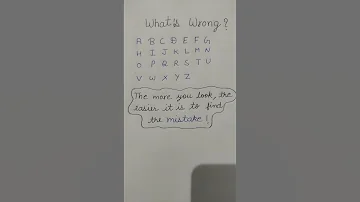 What's Wrong?
A B C D E F G
H I J K L M N
O P Q R S T U
V W X Y Z
The more you look, the
easier it is to find
the mistake!